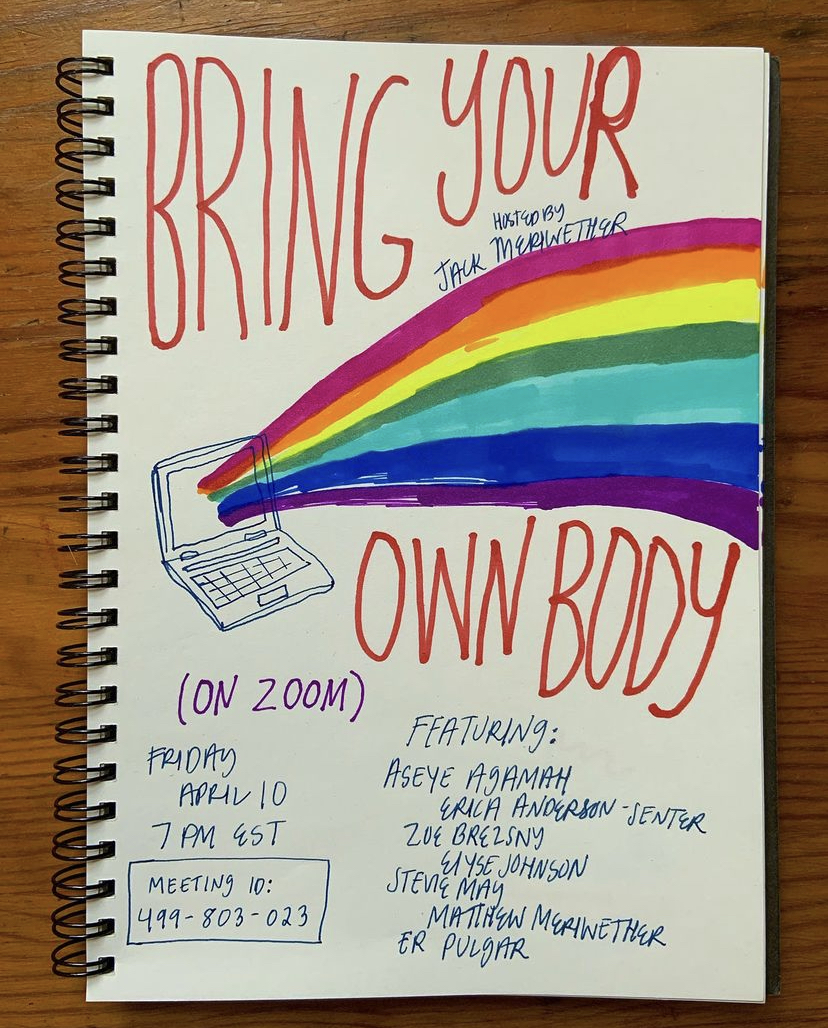 BRING YOUR
HOSTED BY
JACK MERIWETHER
OWN BODY
(ON ZOOM)
FRIDAY
APRIL 10
7 PM EST
MEETING ID:
499-803-023
FEATURING:
ASEYE AGAMAH
ERICA ANDERSON-SENTER
ZOE BREZSNY
ELYSE JOHNSON
STEVIE MAY
MATTHEW MERIWETHER
ER PULGAR